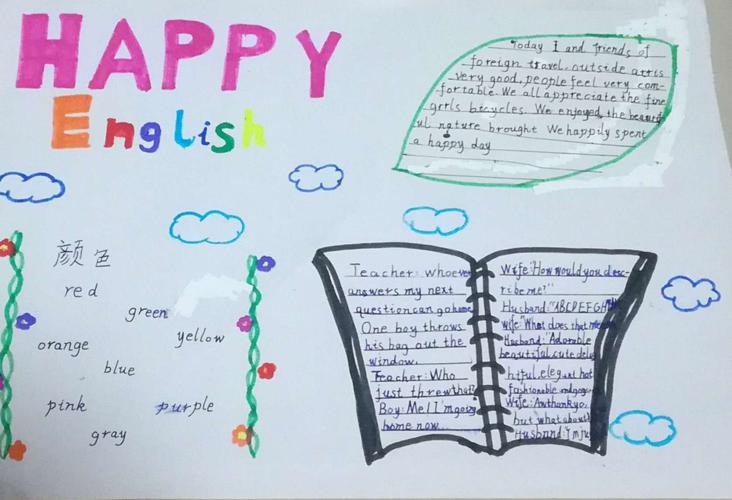 HAPPY
English
Today I and friends of
foreign travel, outside
very good, people feel very com-
fortable. We all appreciate the fine
grrls bicycles. We enjoyed the beautif
ul nature brought We happily spent
a happy day
颜色
red
green
orange
yellow
blue
pink
purple
gray
Teacher: whoever
answers my next
question can go home
One boy throws
his bag out the
window.
Teacher: Who
just threw that?
Boy: Me! I'm going
home now.
Wife: "How would you desc-
ribe me?"
Husband: "ABCDEFGH
Wife: "What does that mean
Husband: Adorable
beautiful, cute delig
htful, elegant hot
fashionable
Wife:
but what about
Husband: I'm ju